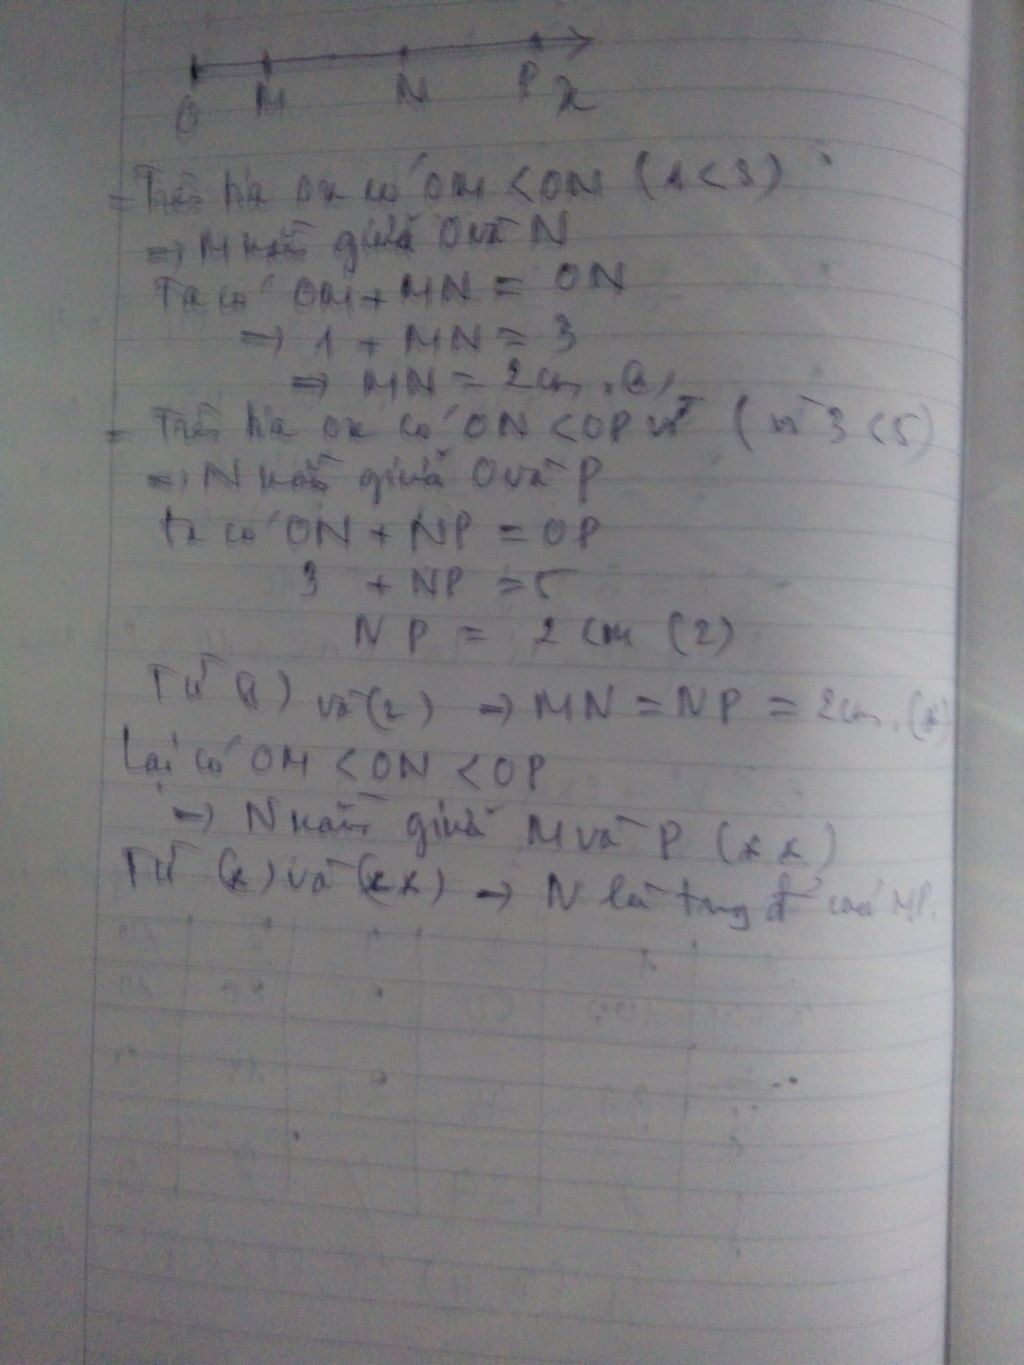 O M N P x
= Trên tia Ox có OM < ON (1 < 3)
=> M nằm giữa O và N
Ta có OM + MN = ON
=> 1 + MN = 3
=> MN = 2cm. (1)
= Trên tia Ox có ON < OP vì (vì 3 < 5)
=> N nằm giữa O và P
ta có ON + NP = OP
3 + NP = 5
NP = 2 cm (2)
Từ (1) và (2) => MN = NP = 2cm. (x)
Lại có OM < ON < OP
=> N nằm giữa M và P (x x)
Từ (x) và (xx) => N là trung đ' của MP.